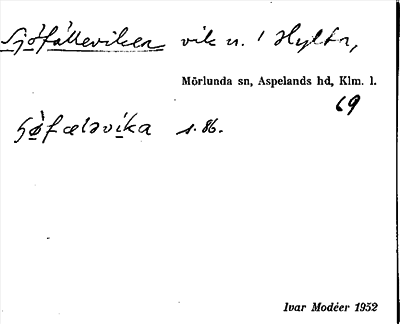 Sjöfälleviken vik n. / Hyltn,
Mörlunda sn, Aspelands hd, Klm. l.
69
s. 86.
Ivar Modéer 1952